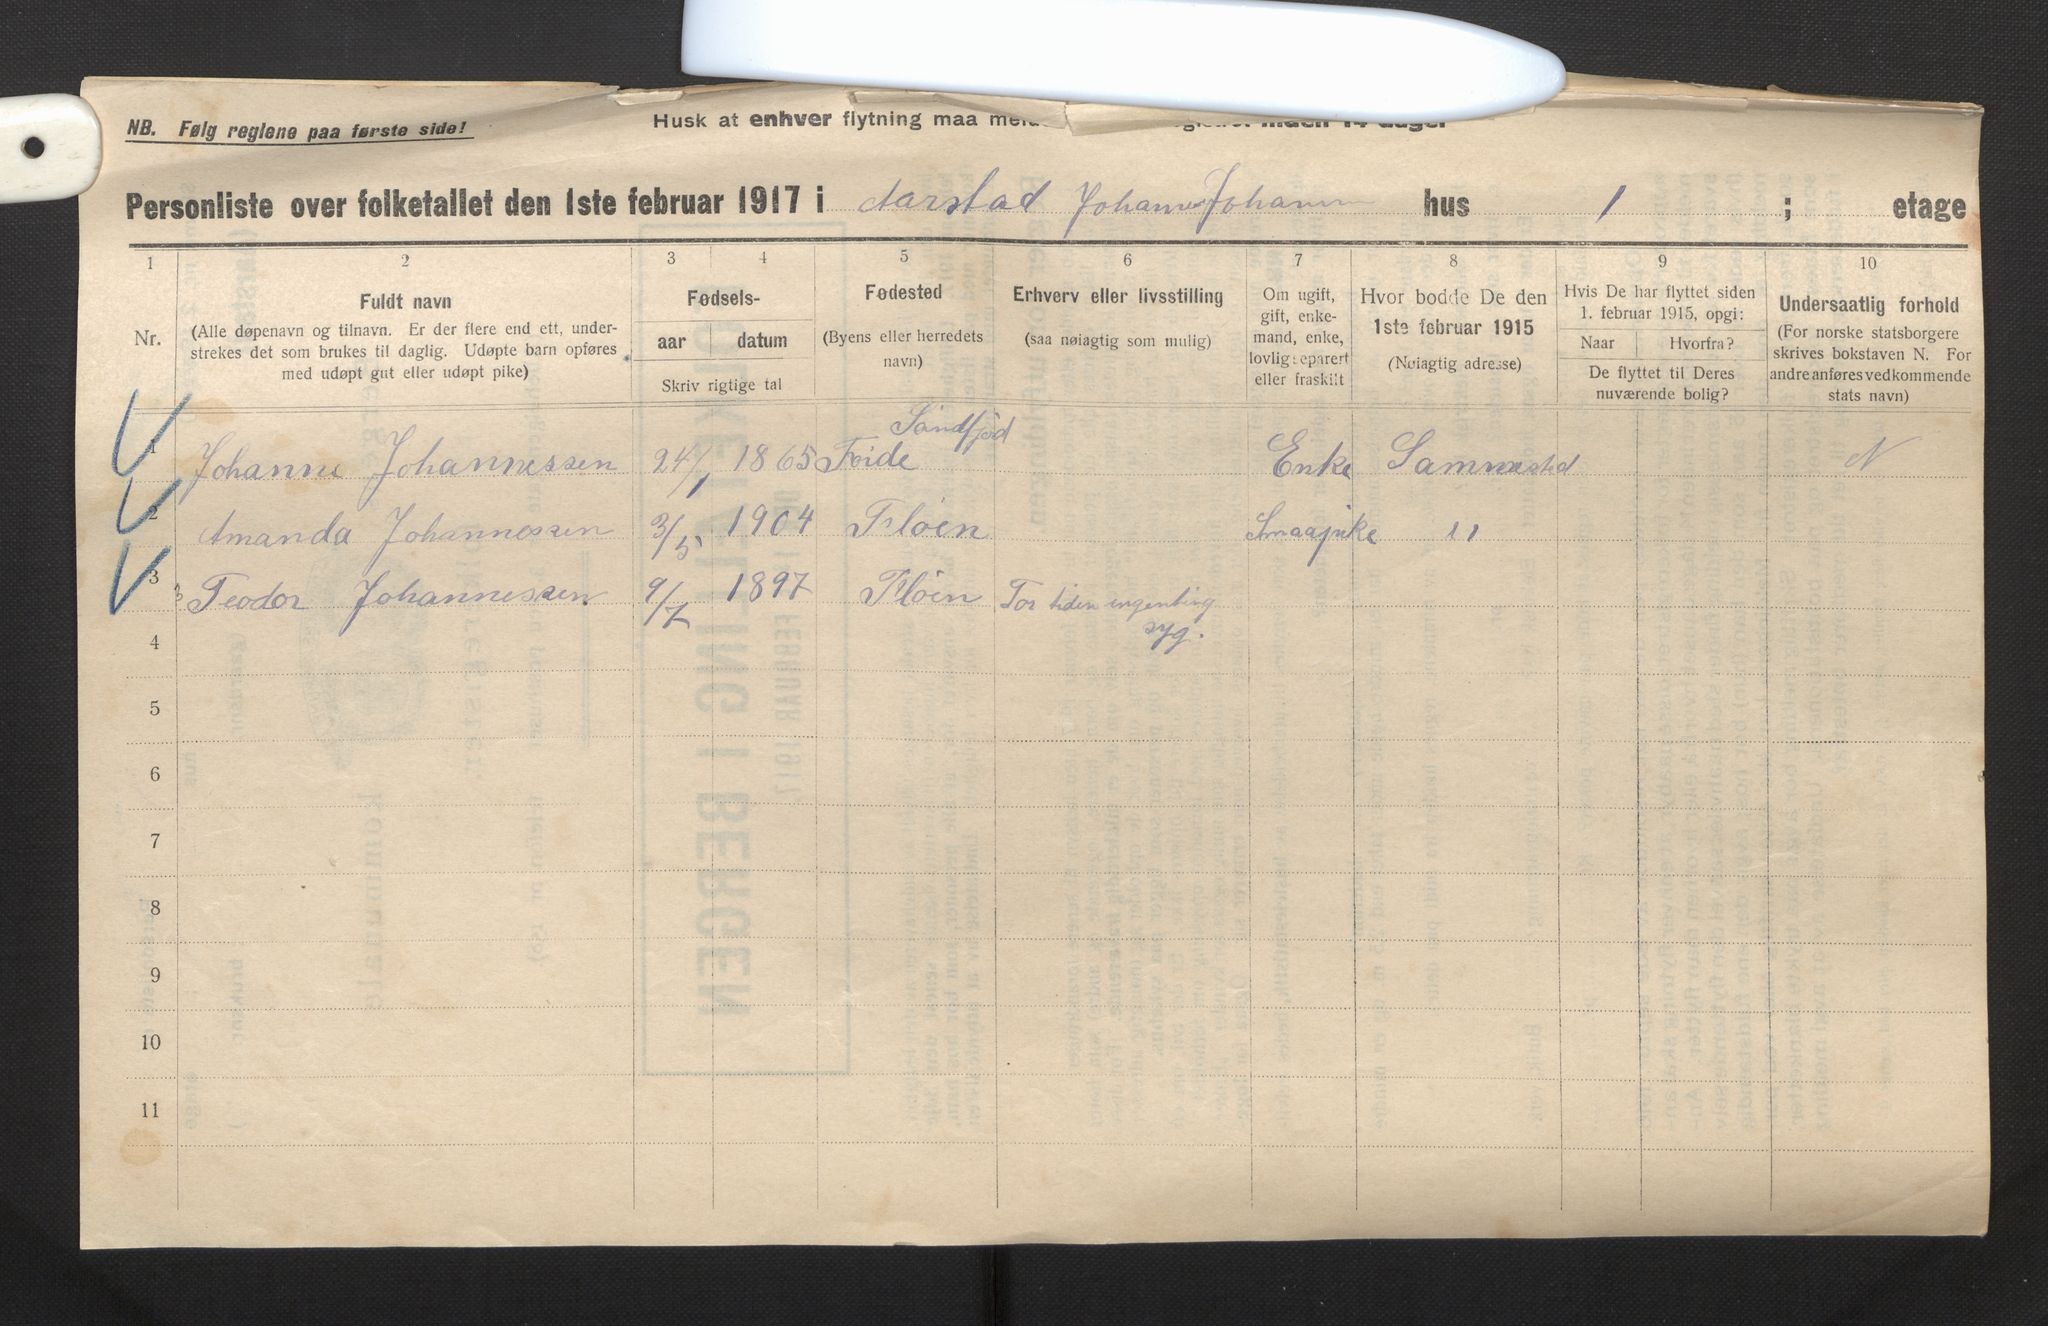 NB. Følg reglene paa første side!
Husk at enhver flytning maa inden 14 dage!
Personliste over folketallet den 1ste februar 1917 i Aarstad Johannes Johann hus 1 ; etage
1 2 3 4 5 6 7 8 9 10
Nr.
Fuldt navn
(Alle døpenavn og tilnavn. Er der flere end ett, under-
strekes det som brukes til daglig. Udøpte barn opføres
med udøpt gut eller udøpt pike)
Fødsels-
aar datum
Skriv rigtige tal
Fødested
(Byens eller herredets
navn)
Erhverv eller livsstilling
(saa nøiagtig som mulig)
Om ugift,
gift, enke-
mand, enke,
lovlig separert
eller fraskilt
Hvor bodde De den
1ste februar 1915
(Nøiagtig adresse)
Hvis De har flyttet siden
1. februar 1915, opgi:
Naar Hvorfra?
De flyttet til Deres
nuværende bolig?
Undersaatlig forhold
(For norske statsborgere
skrives bokstaven N. For
andre anføres vedkommende
stats navn)
Søndfjød
1 Johanne Johannessen 24/1 1865 Føide Enke Sammested N
2 Amanda Johannessen 3/5 1904 Fløen Smaapike 11
3 Teodor Johannessen 9/7 1897 Fløen For tiden ingenting
syg.
4
5
6
7
8
9
10
11